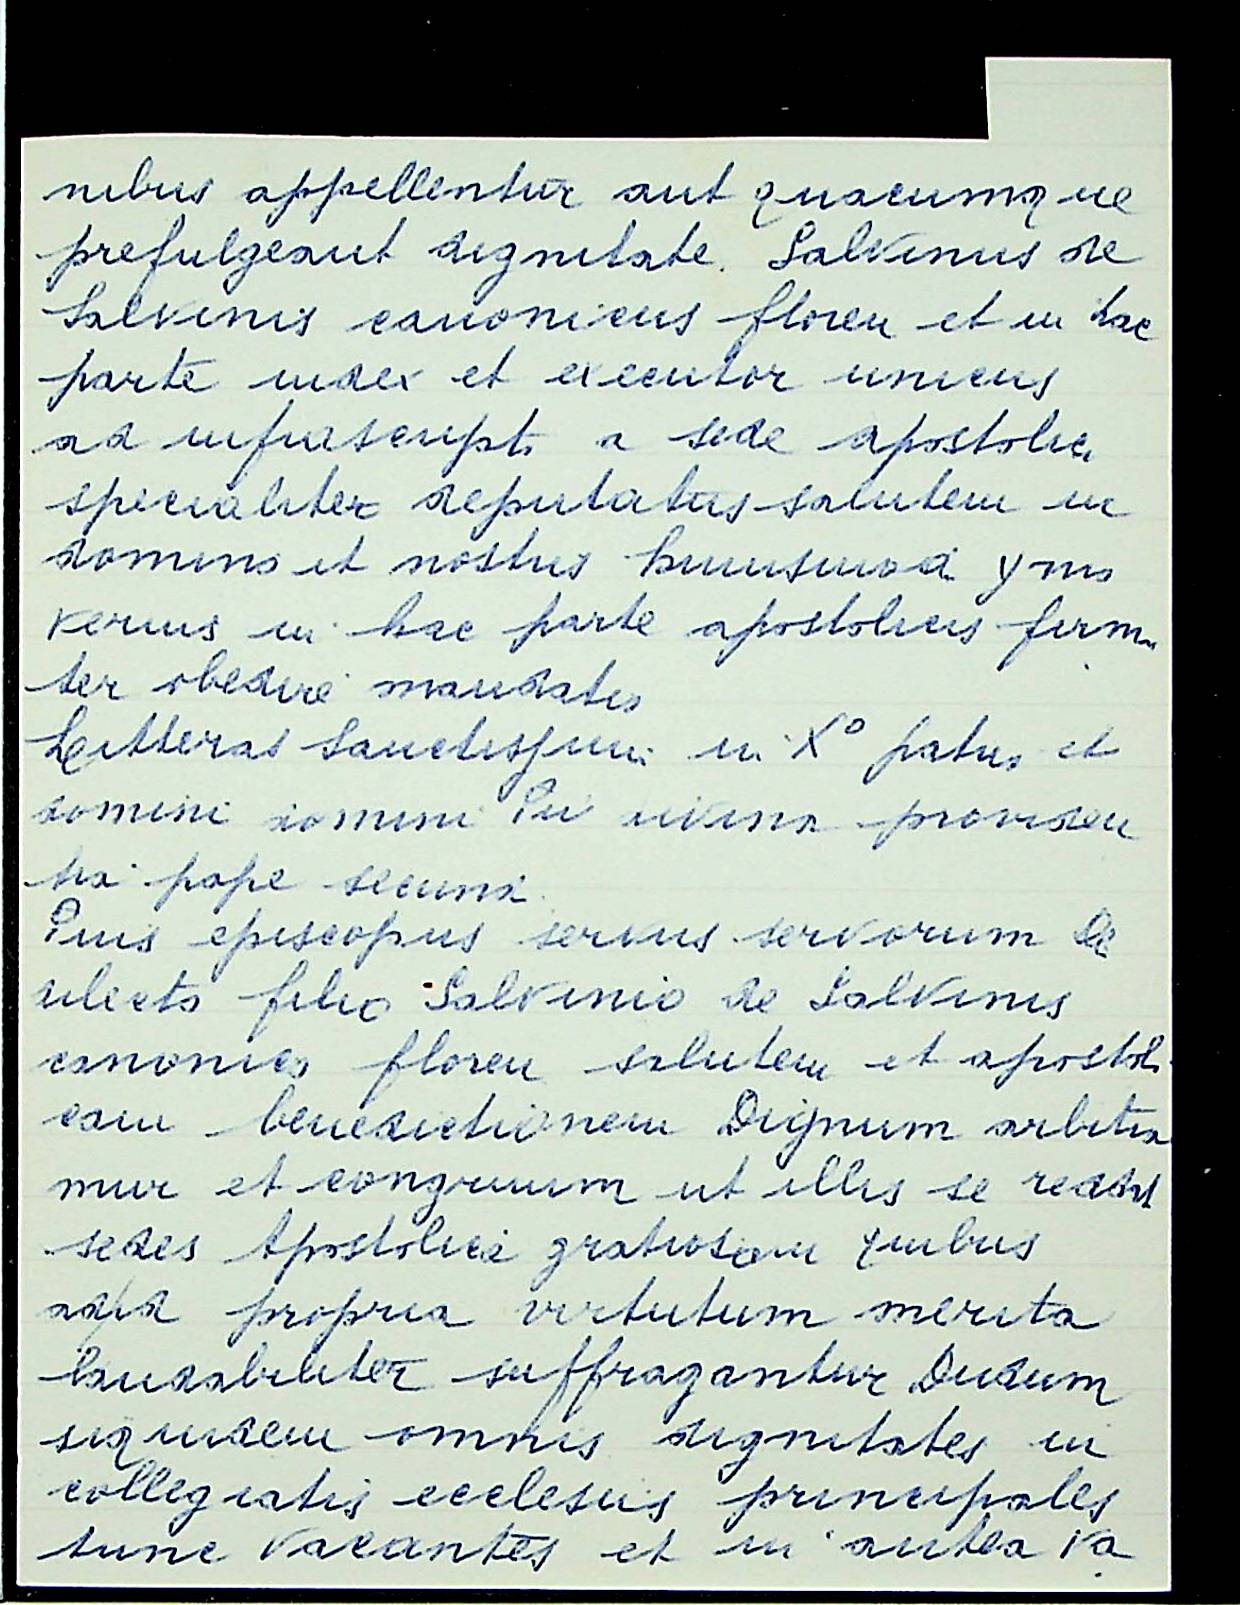 nibus appellentur aut quacumque
prefulgeant dignitate. Salvinus de
Salvinis canonicus floren et in hac
parte iudex et executor unicus
ad infrascripta a sede apostolica
specialiter deputatus salutem in
domino et nostris huiusmodi ymo
verius in hac parte apostolicis firmi
ter obedire mandatis
Litteras Sanctissimi in Xº patris et
domini domini Pii divina providen
tia pape secundi.
Pius episcopus servus servorum Dei
dilecto filio Salvinio de Salvinis
canonico floren salutem et apostoli
cam benedictionem Dignum arbitra
mur et congruum ut illis se reddat
sedes Apostolica gratiosam quibus
propria virtutum merita
laudabiliter suffragantur Dudum
siquidem omnis dignitates in
collegiatis ecclesiis principales
tunc vacantes et in antea va